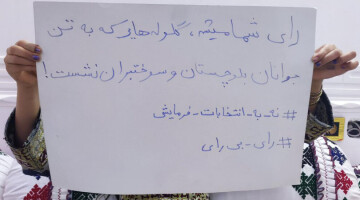 رای شما میشه، گلوله‌هایی که به تن
جوانان بلوچستان و سرختبران نشست!
#نه-به-انتخابات-فرمایشی
#رای-بی-رای